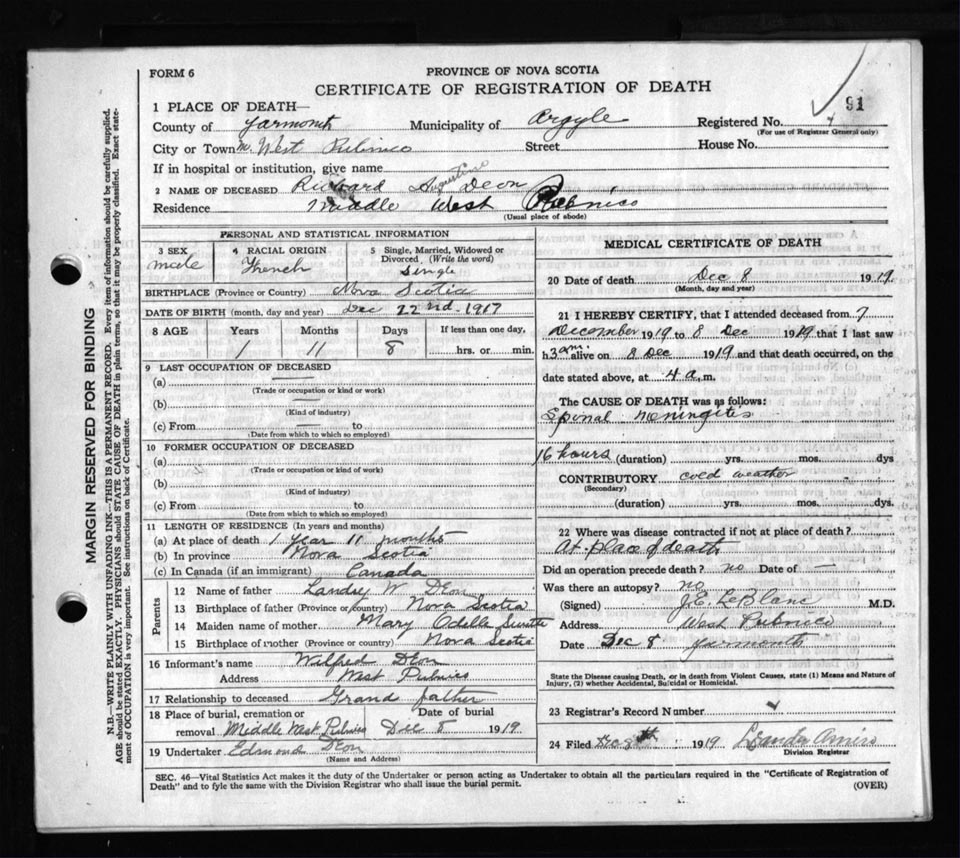 FORM 6
PROVINCE OF NOVA SCOTIA
CERTIFICATE OF REGISTRATION OF DEATH
91
1 PLACE OF DEATH—
County of Yarmouth Municipality of Argyle Registered No. 4
(For use of Registrar General only)
City or Town M. West Pubnico Street House No.
If in hospital or institution, give name
2 NAME OF DECEASED Richard Augustine Deon
Residence Middle West Pubnico
(Usual place of abode)
MARGIN RESERVED FOR BINDING
N.B.—WRITE PLAINLY WITH UNFADING INK—THIS IS A PERMANENT RECORD. Every item of information should be carefully supplied.
AGE should be stated EXACTLY. PHYSICIANS should STATE CAUSE OF DEATH in plain terms, so that it may be properly classified. Exact state-
ment of OCCUPATION is very important. See instructions on back of Certificate.
PERSONAL AND STATISTICAL INFORMATION
3 SEX
male
4 RACIAL ORIGIN
French
5 Single, Married, Widowed or
Divorced (Write the word)
Single
BIRTHPLACE (Province or Country) Nova Scotia
DATE OF BIRTH (month, day and year) Dec 22nd. 1917
8 AGE Years Months Days If less than one day,
1 11 8 hrs. or min.
9 LAST OCCUPATION OF DECEASED
(a)
(Trade or occupation or kind or work)
(b)
(Kind of industry)
(c) From — to
(Date from which to which so employed)
10 FORMER OCCUPATION OF DECEASED
(a)
(Trade or occupation or kind of work)
(b)
(Kind of industry)
(c) From to
(Date from which to which so employed)
11 LENGTH OF RESIDENCE (In years and months)
(a) At place of death 1 Year 11 months
(b) In province Nova Scotia
(c) In Canada (if an immigrant) Canada
Parents
12 Name of father Landry W Deon
13 Birthplace of father (Province or country) Nova Scotia
14 Maiden name of mother Mary Odella Surette
15 Birthplace of mother (Province or country) Nova Scotia
16 Informant's name Wilfred Deon
Address West Pubnico
17 Relationship to deceased Grand father
18 Place of burial, cremation or Date of burial
removal Middle West Pubnico Dec 8 1919
19 Undertaker Edmond Deon
(Name and Address)
MEDICAL CERTIFICATE OF DEATH
20 Date of death Dec 8 1919.
(Month, day and year)
21 I HEREBY CERTIFY, that I attended deceased from 7
December 1919 to 8 Dec 1919 that I last saw
h 3 am. alive on 8 Dec 1919 and that death occurred, on the
date stated above, at 4 a. m.
The CAUSE OF DEATH was as follows:
Spinal Meningitis
16 hours (duration) yrs. mos. dys
CONTRIBUTORY cold weather
(Secondary)
(duration) yrs. mos. dys.
22 Where was disease contracted if not at place of death?
At place of death
Did an operation precede death? no Date of —
Was there an autopsy? no
(Signed) J.E. LeBlanc M.D.
Address West Pubnico
Date Dec 8 Yarmouth
State the Disease causing Death, or in death from Violent Causes, state (1) Means and Nature of
Injury, (2) whether Accidental, Suicidal or Homicidal.
23 Registrar's Record Number 4
24 Filed 1919 Leander Amiro
Division Registrar
SEC. 46—Vital Statistics Act makes it the duty of the Undertaker or person acting as Undertaker to obtain all the particulars required in the "Certificate of Registration of
Death" and to fyle the same with the Division Registrar who shall issue the burial permit.
(OVER)